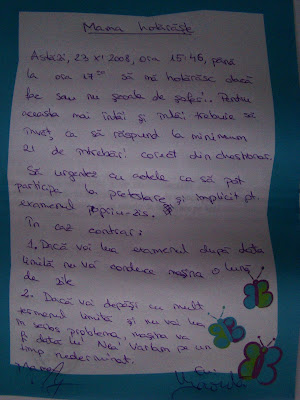 Mama hotărăște
Astăzi, 23 XI 2008, ora 15:46, până
la ora 17⁰⁰ să mă hotărăsc dacă
fac sau nu școala de șoferi.. Pentru
aceasta mai întâi și întâi trebuie să
învăț, ca să răspund la minimum
21 de întrebări corect din chestionar.
Să urgentez cu actele ca să pot
participa la pretestare și implicit pt.
examenul propriu-zis.
În caz contrar:
1. Dacă voi lua examenul după data
limită nu voi conduce mașina o lună
de zile
2. Dacă voi depăși cu mult
termenul limită și nu voi lua
în serios problema, mașina va
fi dată lui Nea Vartan pe un
timp nedeterminat.